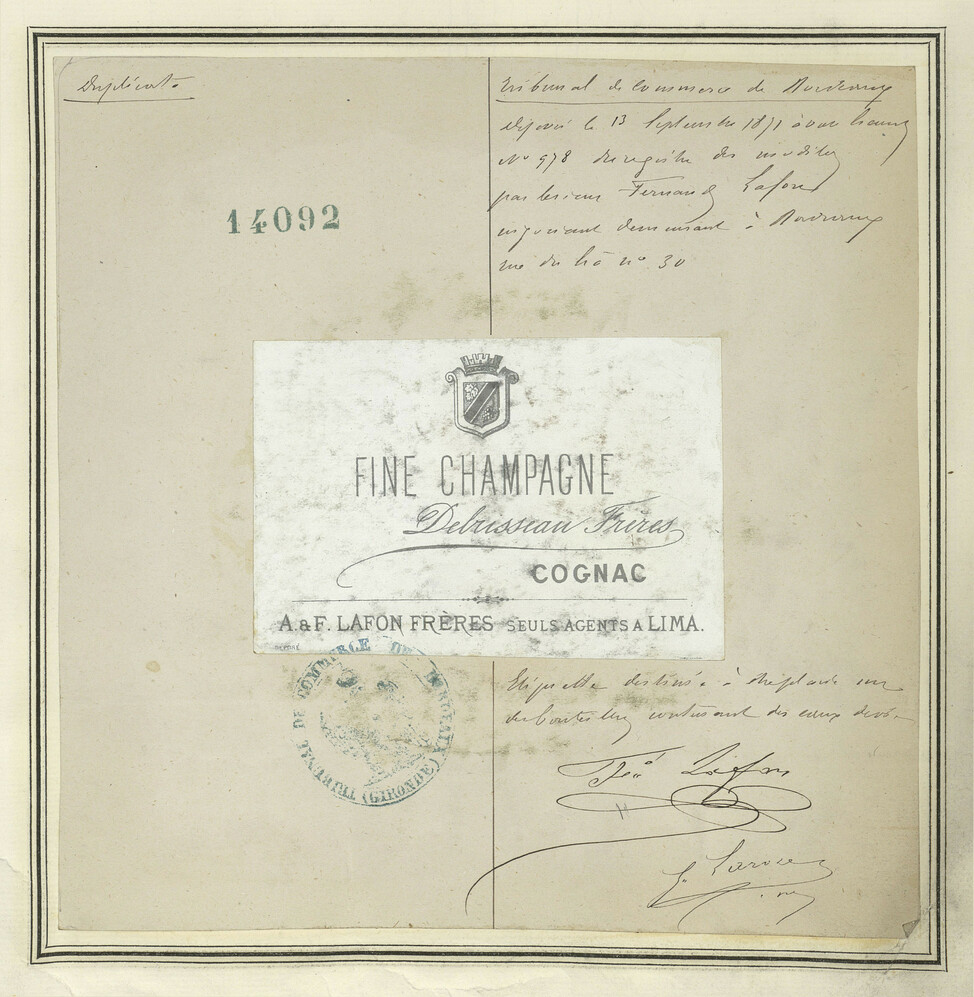 Duplicata
14092
Tribunal de Commerce de Bordeaux
déposé le 13 Septembre 1871 à onze heures
No 978 du registre des modèles
par le sieur Fernand Lafon
négociant demeurant à Bordeaux
rue du hâ no 30
FINE CHAMPAGNE
Debrisseau Frères
COGNAC
A. & F. LAFON FRÈRES SEULS AGENTS A LIMA.
DÉPOSÉ
TRIBUNAL DE COMMERCE DE BORDEAUX (GIRONDE)
Etiquette destinée à être placée sur
des bouteilles contenant des eaux de vie
Lafon